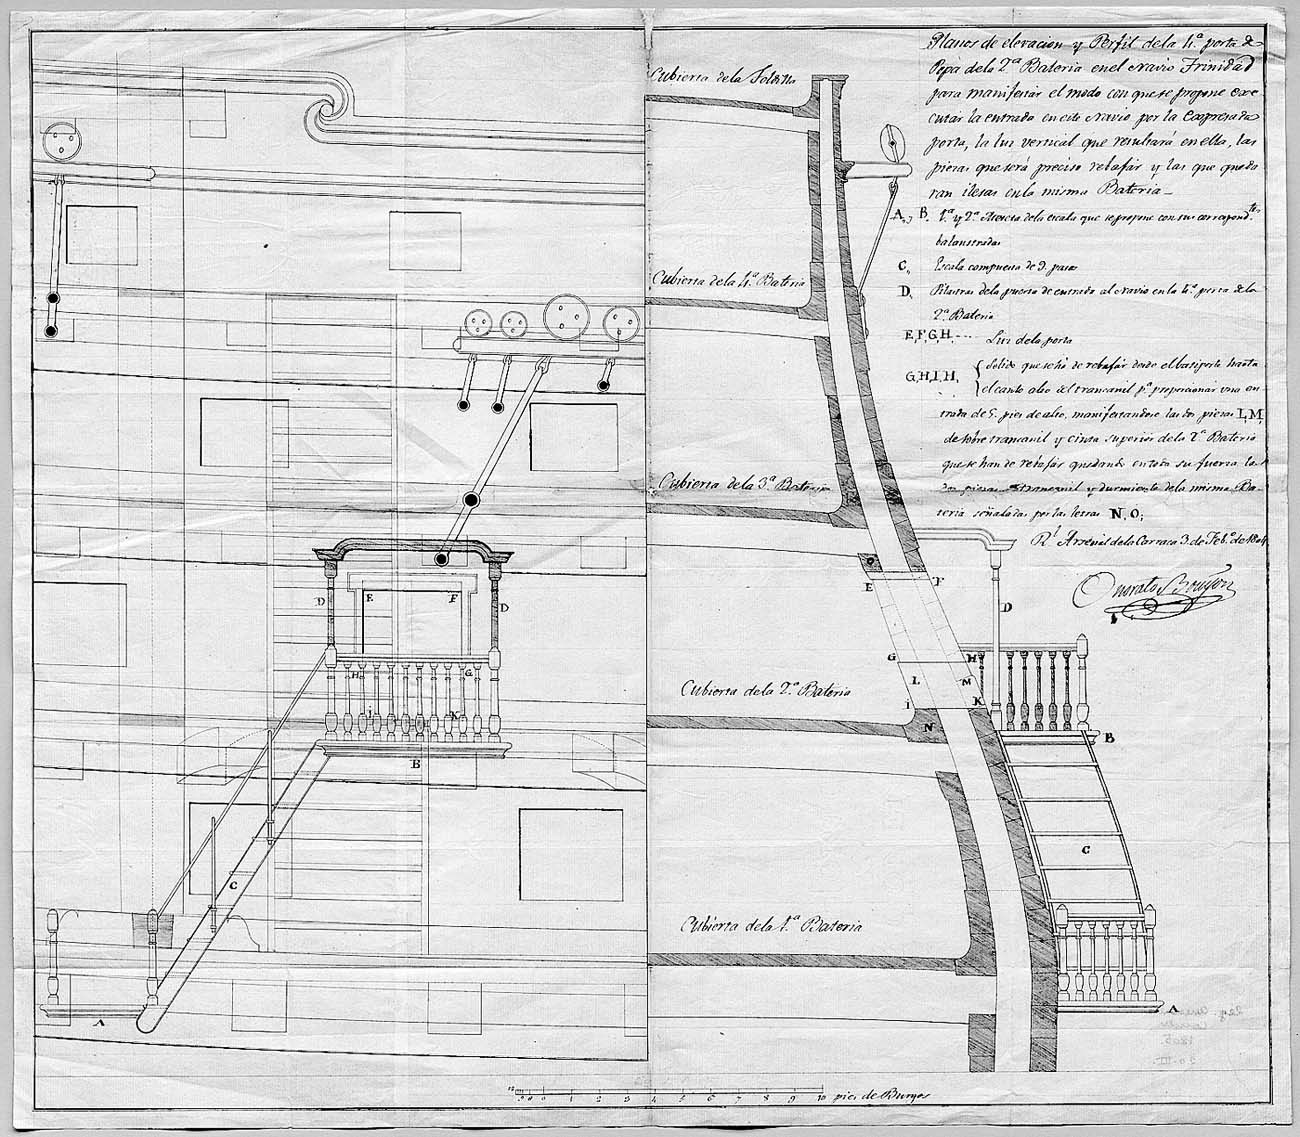 Planos de elevacion y Perfil de la 4.ª porta de
Popa de la 2.ª Bateria en el Navio Trinidad
para manifestar el modo con que se propone exe-
cutar la entrada en este Navio por la expresada
porta, la luz vertical que resultará en ella, las
piezas que será preciso rebajar y las que queda
ran ilesas en la misma Bateria_
A, y B. 1.ª y 2.ª Mesetas de la escala que se propone con sus correspond.tes
balaustradas
C, Escala compuesta de 9. pasos
D, Pilastras de la puerta de entrada al Navio en la 4.ª porta de la
2.ª Bateria
E,F,G,H--- Luz de la porta
G,H,I,H, { Solido que se há de rebajár desde el batiporte hasta
el canto alto del trancanil p.ª proporcionar una en-
trada de 5. pies de alto, manifestandose las dos piezas L,M,
de sobre trancanil y cinta superior de la 2.ª Bateria
que se han de rebajár quedando en toda su fuerza las
dos piezas trancanil y durmiente de la misma Ba-
teria señaladas por las letras N,O;
R.l Arsenal de la Carraca 3. de Feb.º de 1804.
Onorato Bouyon
Cubierta de la Toldilla
Cubierta de la 4.ª Bateria
Cubierta de la 3.ª Bateria
Cubierta de la 2.ª Bateria
Cubierta de la 1.ª Bateria
O
E F
D
G H
L M
I K
N
B
C
A
D E F D
H G
I K
B
C
A
12 9 6 3 0 1 2 3 4 5 6 7 8 9 10 pies de Burgos